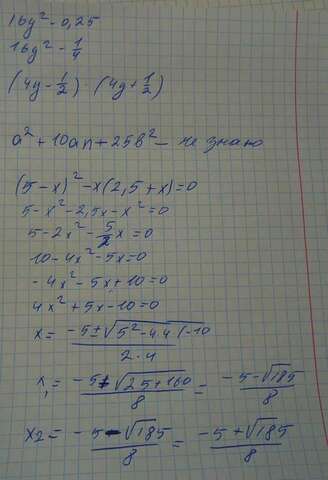 16y² - 0,25
16y² - 1/4
(4y - 1/2) · (4y + 1/2)
a² + 10an + 25b² - не знаю
(5 - x)² - x(2,5 + x) = 0
5 - x² - 2,5x - x² = 0
5 - 2x² - 5/2 x = 0
10 - 4x² - 5x = 0
- 4x² - 5x + 10 = 0
4x² + 5x - 10 = 0
x = -5 ± √5² - 4·4·(-10 / 2·4
x₁ = -5 ± √25 + 160 / 8 = -5 - √185 / 8
x₂ = -5 - √185 / 8 = -5 + √185 / 8